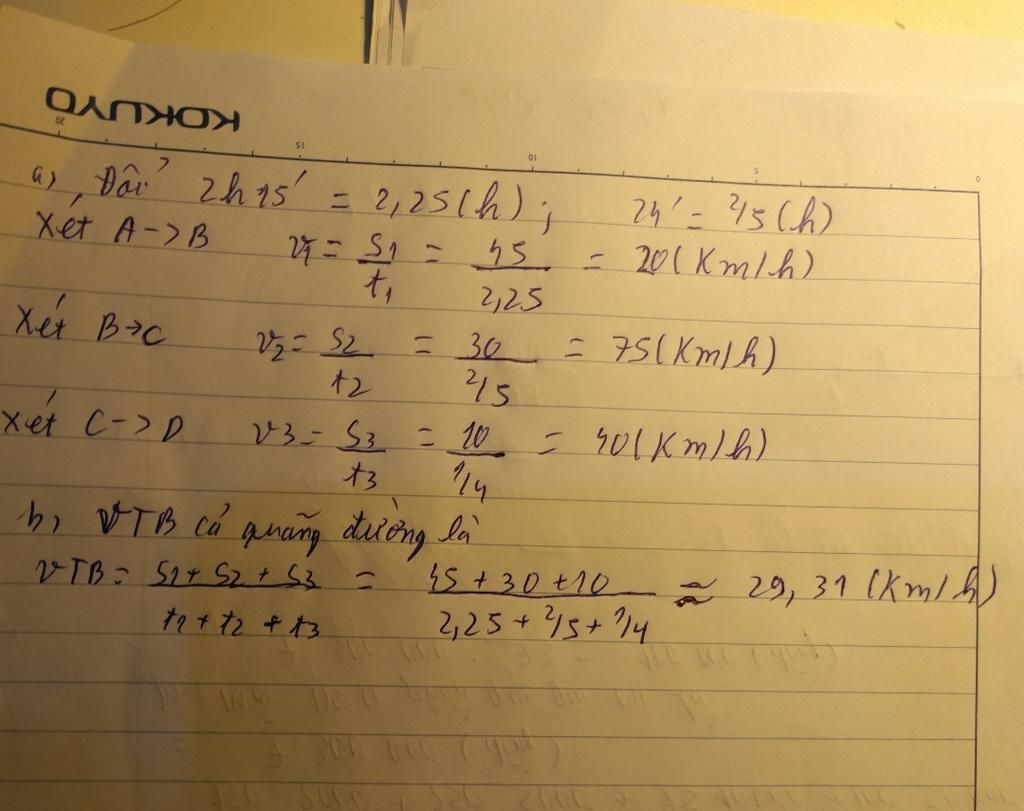 KOKUYO
20 15 10 5 0
a) Đổi 2h15' = 2,25(h); 24' = 2/5(h)
Xét A->B v1 = S1/t1 = 45/2,25 = 20(Km/h)
Xét B->C v2 = S2/t2 = 30/2/5 = 75(Km/h)
Xét C->D v3 = S3/t3 = 10/1/4 = 40(Km/h)
b, vTB cả quãng đường là
vTB = S1+S2+S3/t1+t2+t3 = 45+30+10/2,25+2/5+1/4 ≈ 29,31 (Km/h)